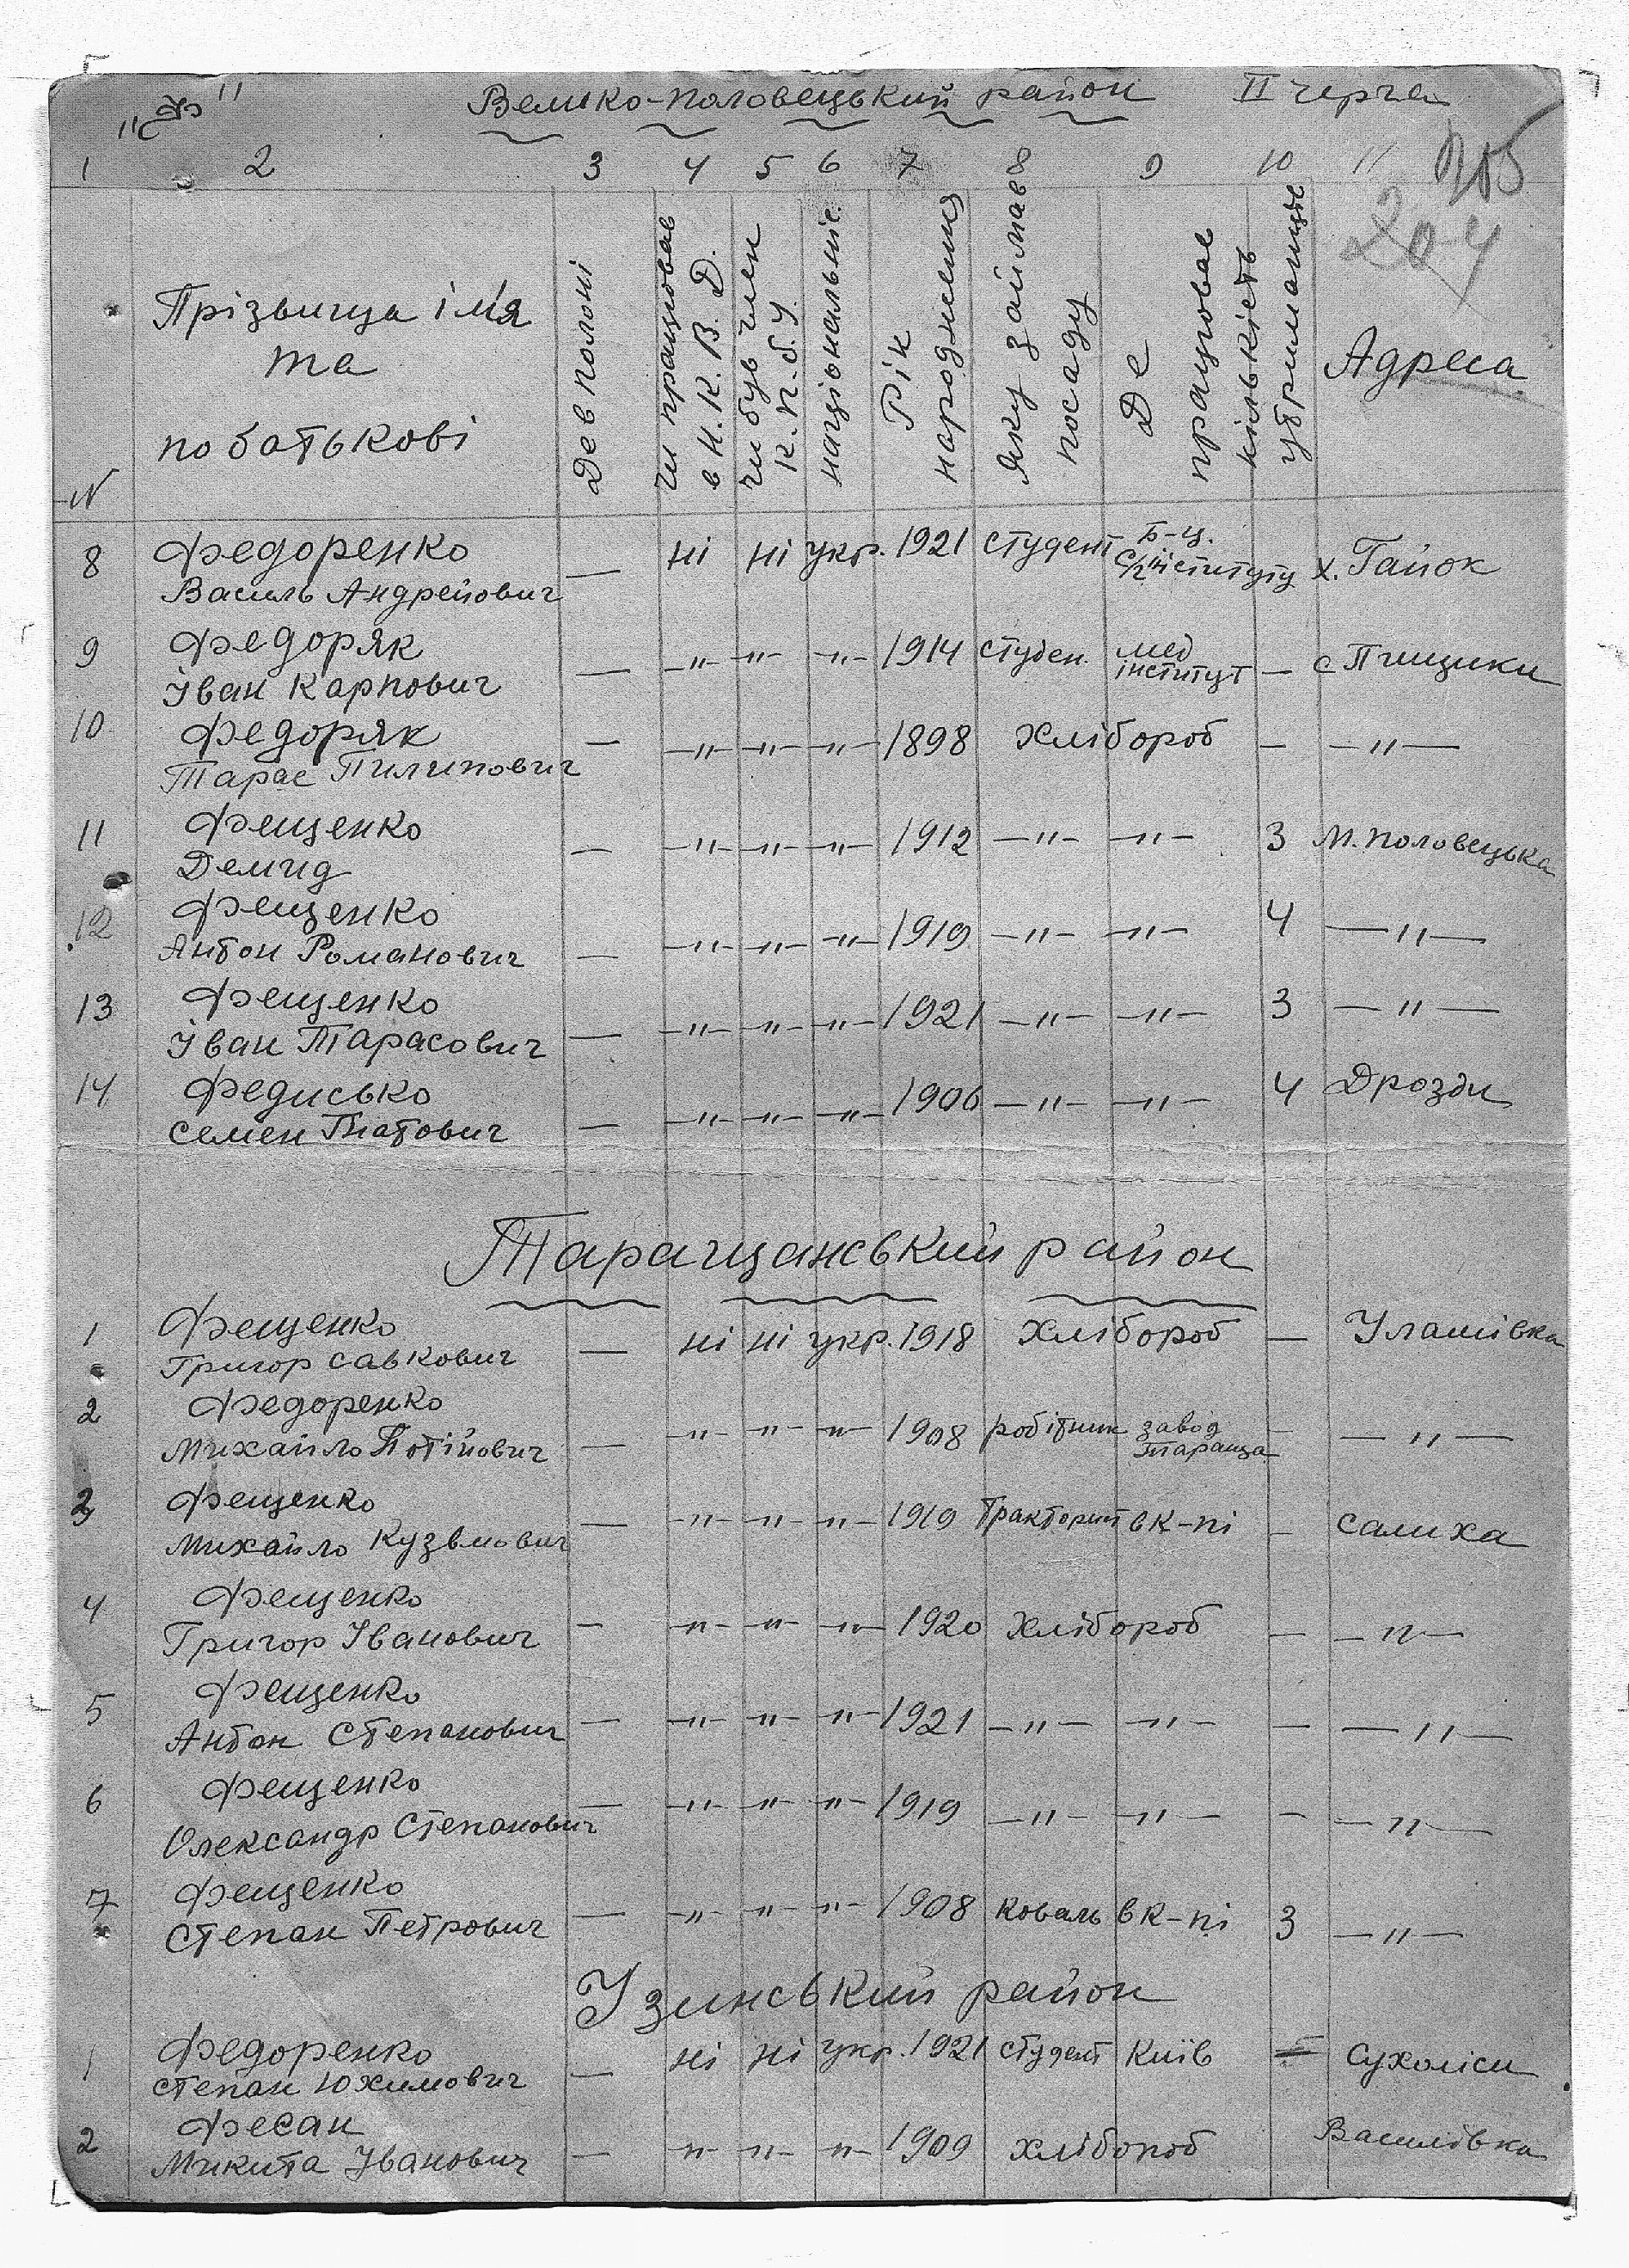 "Ф" Велико-Половецький район II черга
1 2 3 4 5 6 7 8 9 10 11
204
N Прізвища ім'я та по батькові
Де в полоні
чи працював в Н.К.В.Д.
чи був член К.П.б.У.
національніс.
Рік народження
Яку займав посаду
Де працював
кількість утриманців
Адреса
8 Федоренко — ні ні укр. 1921 студент Б-Ц. с/г інституту х. Гайок
Василь Андрейович
9 Федоряк — -"- -"- -"- 1914 студен. мед інститут — с Пищики
Іван Карпович
10 Федоряк — -"- -"- -"- 1898 Хлібороб — —"—
Тарас Пилипович
11 Фещенко — -"- -"- -"- 1912 -"- -"- 3 М. Половецька
Демид
12 Фещенко — -"- -"- -"- 1919 -"- -"- 4 —"—
Антон Романович
13 Фещенко — -"- -"- -"- 1921 -"- -"- 3 —"—
Іван Тарасович
14 Федисько — -"- -"- -"- 1906 -"- -"- 4 Дрозди
Семен
Таращанський район
1 Фещенко — ні ні укр. 1918 Хлібороб — Улашівка
Григор Савкович
2 Федоренко — -"- -"- -"- 1908 робітник завод Тараща — —"—
Михайло
3 Фещенко — -"- -"- -"- 1919 Тракторит в к-пі — Салиха
Михайло Кузьмович
4 Фещенко — -"- -"- -"- 1920 Хлібороб — —"—
Григор Іванович
5 Фещенко — -"- -"- -"- 1921 -"- -"- — —"—
Антон Степанович
6 Фещенко — -"- -"- -"- 1919 -"- -"- — —"—
Олександр Степанович
7 Фещенко — -"- -"- -"- 1908 коваль в к-пі 3 —"—
Степан Петрович
Узинський район
1 Федоренко — ні ні укр. 1921 студент Київ — Сухоліси
Степан Юхимович
2 Фесан — -"- -"- -"- 1909 хлібороб Василівка
Микита Іванович